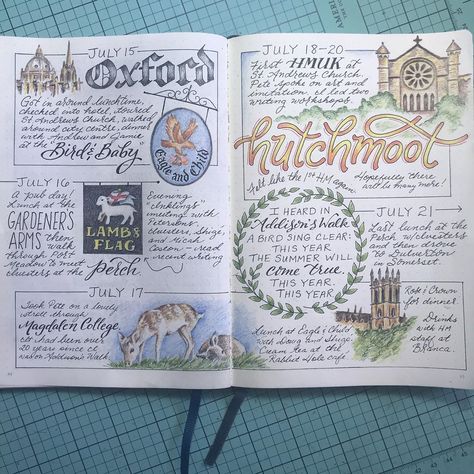 JULY 15
Oxford
Got in around lunchtime,
checked into hotel, toured
St Andrews Church, walked
around city centre, dinner
with Indalu and Jamie
at the "Bird & Baby"
Eagle and Child
JULY 16
A pub day!
Lunch at the
GARDENER'S
ARMS then
walk
through Port
Meadow to meet
clusters at the
Perch
LAMB &
FLAG
Evening
"Inklings"
meeting with
Parsons,
clusters, Shigé,
and Micah
Carter — read
recent writing
JULY 17
Took Pete on a lovely
stroll through
Magdalen College,
it had been over
20 years since I
was on Addison's Walk
JULY 18-20
First HMUK at
St Andrews Church.
Pete spoke on art and
invitation, I led two
writing workshops.
hutchmoot
Felt like the 1st HM again.
Hopefully there
will be many more!
I HEARD IN
Addison's Walk
A BIRD SING CLEAR:
THIS YEAR
THE SUMMER WILL
come true.
THIS YEAR.
THIS YEAR
JULY 21
Last lunch at the
Perch w/clusters
and then drove
to Dulverton
Somerset.
Rose & Crown
for dinner.
Drinks
with HM
staff at
Branca.
Lunch at Eagle & Child
with Doug and Shigé.
Cream tea at the
Rabbit Hole café